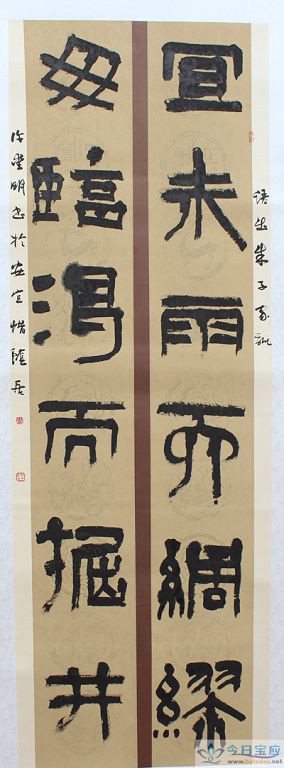 語出朱子家訓
宜未雨而綢繆
毋臨渴而掘井
明書於安宜惜陰居
今日宝应
www.bytoday.net